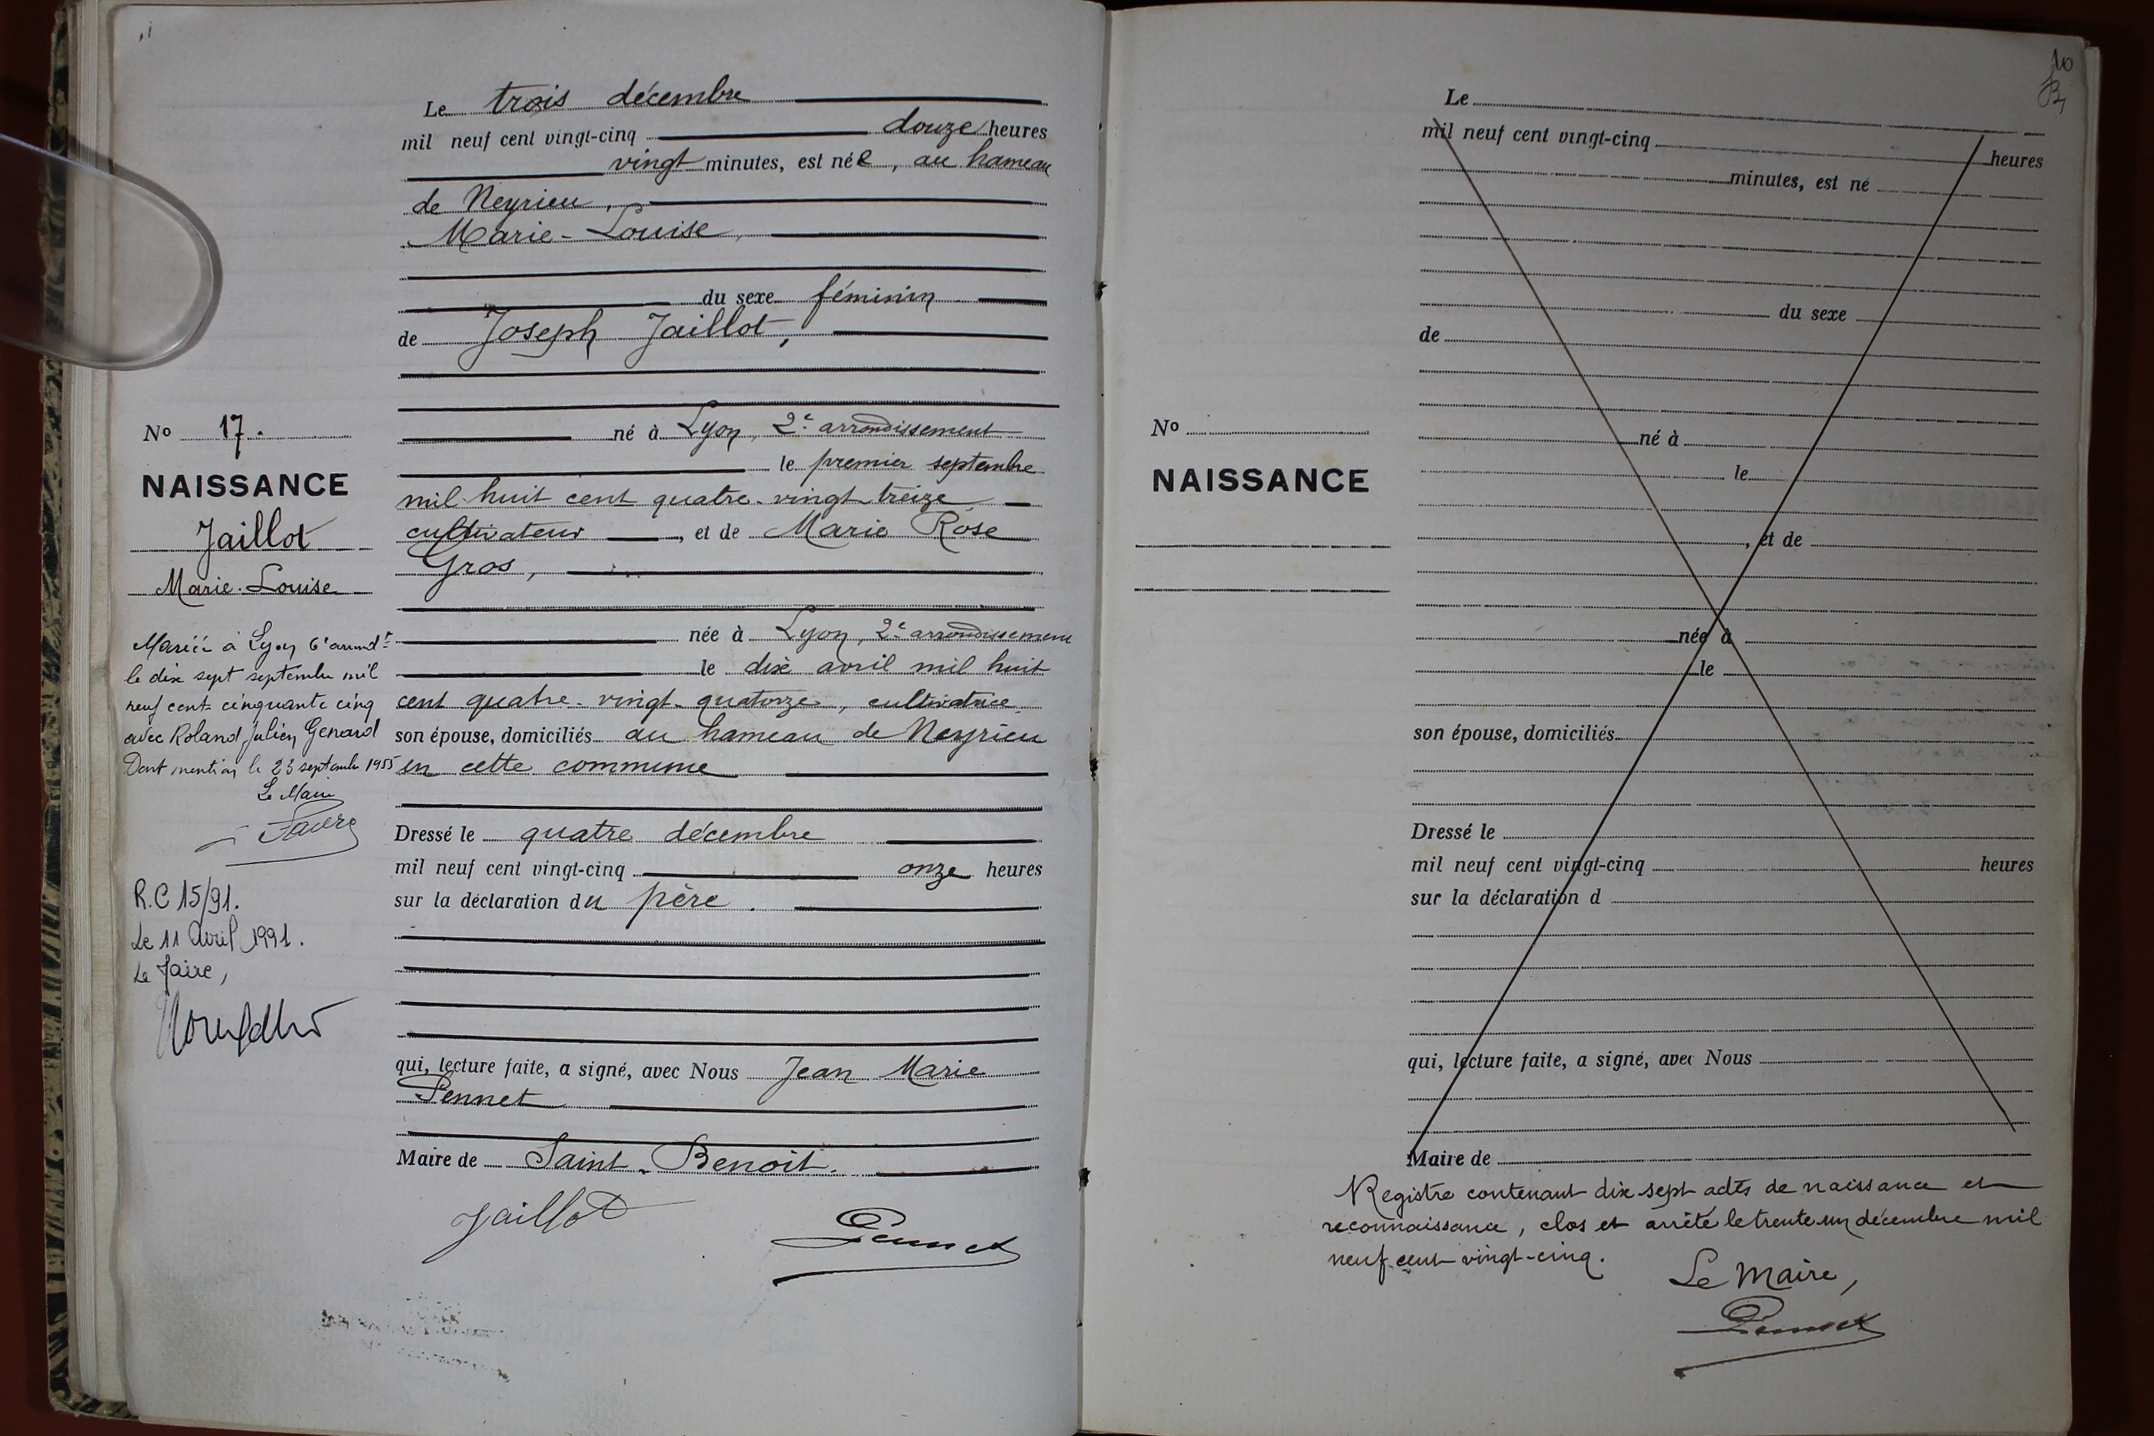 Le trois décembre
mil neuf cent vingt-cinq douze heures
vingt minutes, est née, au hameau
de Neyrieu,
Marie-Louise,
du sexe féminin
de Joseph Jaillot,
né à Lyon, 2e arrondissement
le premier septembre
mil huit cent quatre-vingt treize
cultivateur, et de Marie Rose
Gros,
née à Lyon, 2e arrondissement
le dix avril mil huit
cent quatre-vingt-quatorze, cultivatrice,
son épouse, domiciliés au hameau de Neyrieu
en cette commune
Dressé le quatre décembre
mil neuf cent vingt-cinq onze heures
sur la déclaration du père.
qui, lecture faite, a signé, avec Nous Jean Marie
Pennet
Maire de Saint-Benoit.
Jaillot
Pennet
No 17.
NAISSANCE
Jaillot
Marie-Louise
Mariée à Lyon 6e arrondt
le dix sept septembre mil
neuf cent cinquante cinq
avec Roland Julien Genard
Dont mention le 23 septembre 1955
Le Maire
Favre
R.C 15/91.
Le 11 Avril 1991.
Le Maire,
10
Le
mil neuf cent vingt-cinq heures
minutes, est né
du sexe
de
No
NAISSANCE
né à
le
, et de
née à
le
son épouse, domiciliés
Dressé le
mil neuf cent vingt-cinq heures
sur la déclaration d
qui, lecture faite, a signé, avec Nous
Maire de
Registre contenant dix sept actes de naissance et
reconnaissance, clos et arrêté le trente un décembre mil
neuf cent vingt-cinq.
Le Maire,
Pennet